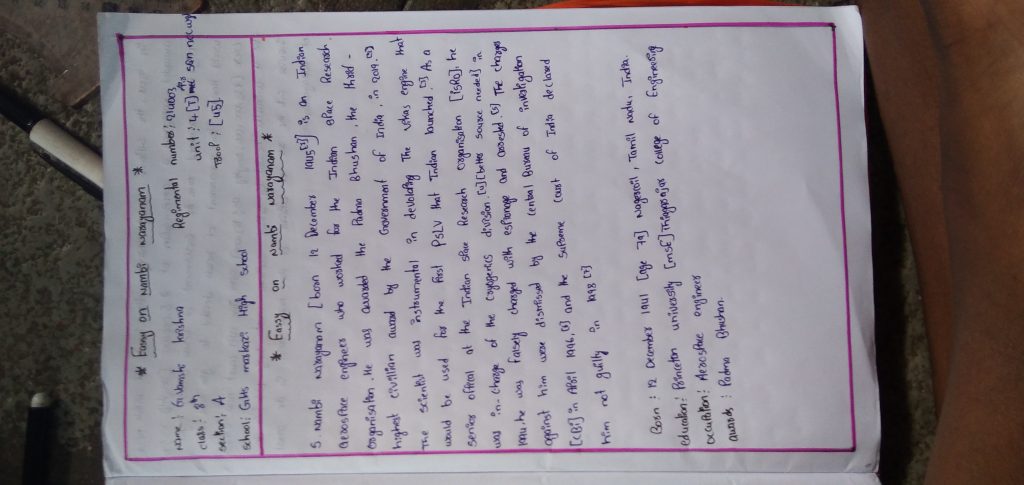 * Eassy on Nambi narayanam *
Name: Goutmate krishna
Regimental number: 214003
class: 8th
unit: 4 [T] SGN NCC
section: A
TROOP: [45]
school: GHS High school
* Eassy on Nambi narayanam *
S nambi narayanam [born 12 December 1945[2]] is an Indian
aerospace engineer who worked for the Indian space Research
Organisation. He was awarded the Padma Bhushan, the third-
highest civilian award by the Government of India, in 2019. [3]
The scientist was instrumental in devolding The vikas engine that
would be used for the first PSLV that Indian launched [3] As a
senior offical at the Indian space Research organisation [isRo], he
was in-charge of the cryogenics division. [4][better source needed] in
1994, he was falsely charged with espionage and arrested. [5] The charges
against him were dismissed by the central Bureau of investigation
[CBI] in April 1996, [6] and the supreme court of India declared
him not guilty in 1998 [7]
Born: 12 December 1941 [age 79] Nagercoil, Tamil nadu, India.
education: Princeton university [MSE] Thiagarajar college of Engineering
occupation: Aerospace engineer
awards: Padma Bhushan.